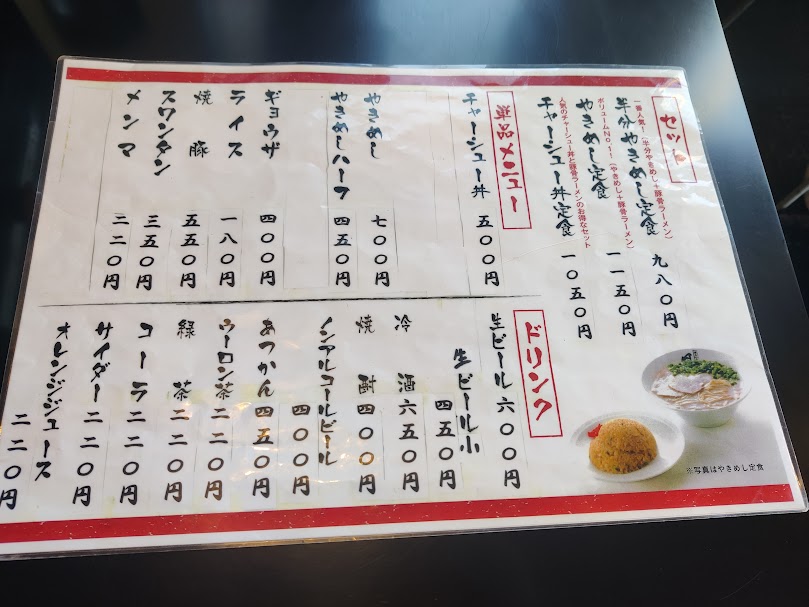 セット
一番人気！(半分やきめし＋豚骨ラーメン)
半分やきめし定食 九八〇円
ボリュームNo.1！(やきめし＋豚骨ラーメン)
やきめし定食 一一五〇円
人気のチャーシュー丼と豚骨ラーメンのお得なセット
チャーシュー丼定食 一〇五〇円
単品メニュー
チャーシュー丼 五〇〇円
やきめし 七〇〇円
やきめしハーフ 四五〇円
ギョウザ 四〇〇円
ライス 一八〇円
焼豚 五五〇円
スワンタン 三五〇円
メンマ 二二〇円
ドリンク
生ビール 六〇〇円
生ビール小 四五〇円
冷酒 六五〇円
焼酎 四〇〇円
ノンアルコールビール 四〇〇円
あつかん 四五〇円
ウーロン茶 二二〇円
緑茶 二二〇円
コーラ 二二〇円
サイダー 二二〇円
オレンジジュース 二二〇円
※写真はやきめし定食